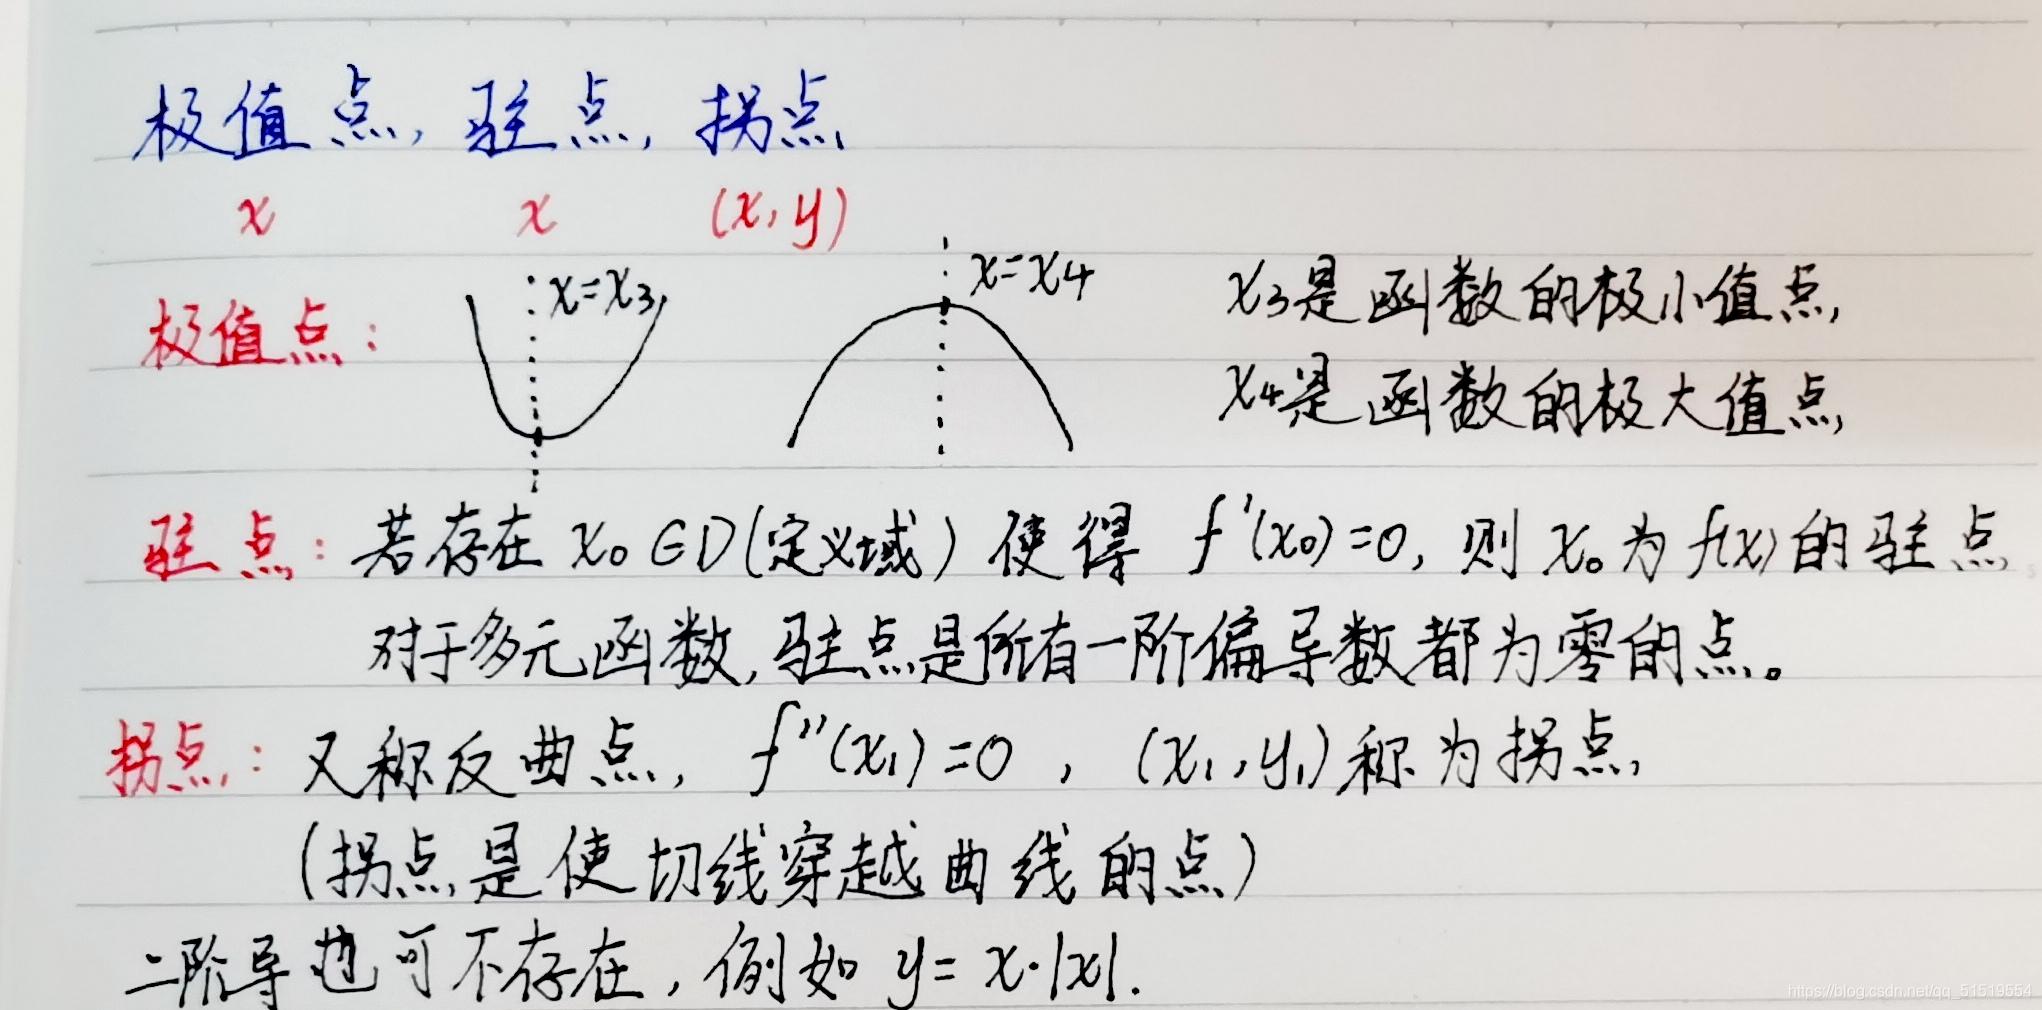 极值点, 驻点, 拐点
x x (x, y)
极值点: x=x₃ x=x₄ x₃是函数的极小值点,
x₄是函数的极大值点,
驻点: 若存在 x₀∈D(定义域) 使得 f'(x₀)=0, 则 x₀为 f(x)的驻点
对于多元函数, 驻点是所有一阶偏导数都为零的点。
拐点: 又称反曲点, f''(x₁)=0 , (x₁, y₁)称为拐点,
(拐点是使切线穿越曲线的点)
二阶导也可不存在, 例如 y= x·|x|.
https://blog.csdn.net/qq_51519554